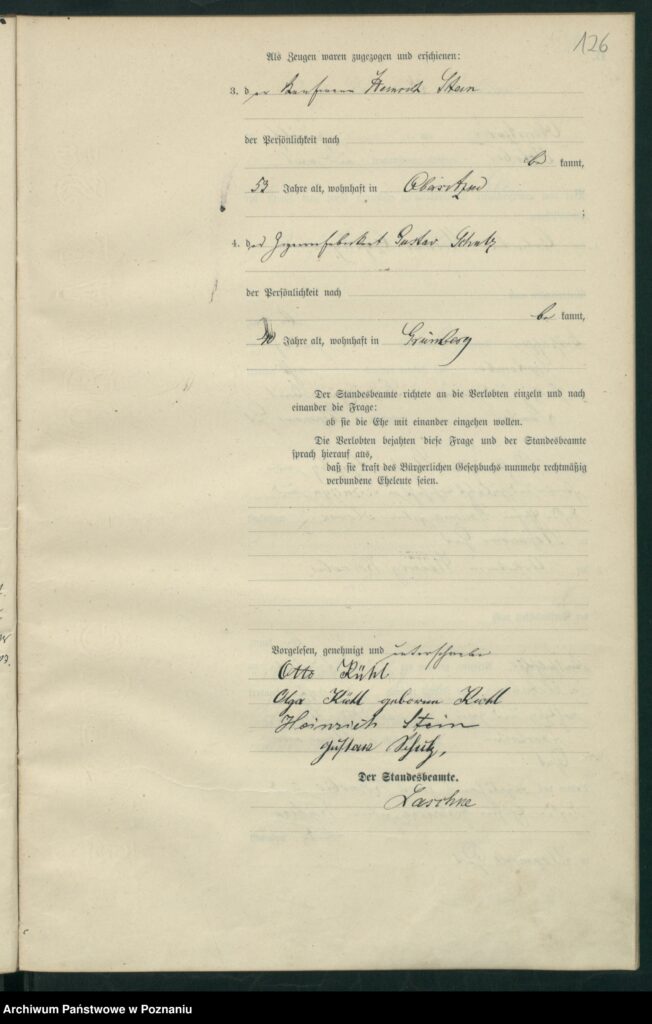 126
Als Zeugen waren zugezogen und erschienen:
3. der Kaufmann Heinrich Stein
der Persönlichkeit nach
be kannt,
53 Jahre alt, wohnhaft in Obersitzko
;
4. der Zigarrenfabrikant Gustav Schulz
der Persönlichkeit nach
be kannt,
40 Jahre alt, wohnhaft in Grünberg
Der Standesbeamte richtete an die Verlobten einzeln und nach
einander die Frage:
ob sie die Ehe mit einander eingehen wollen.
Die Verlobten bejahten diese Frage und der Standesbeamte
sprach hierauf aus,
daß sie kraft des Bürgerlichen Gesetzbuchs nunmehr rechtmäßig
verbundene Eheleute seien.
Vorgelesen, genehmigt und unterschrieben
Otto Kühl
Olga Kühl geborene
Heinrich Stein
Gustav Schulz.
Der Standesbeamte.
Laschke
Archiwum Państwowe w Poznaniu